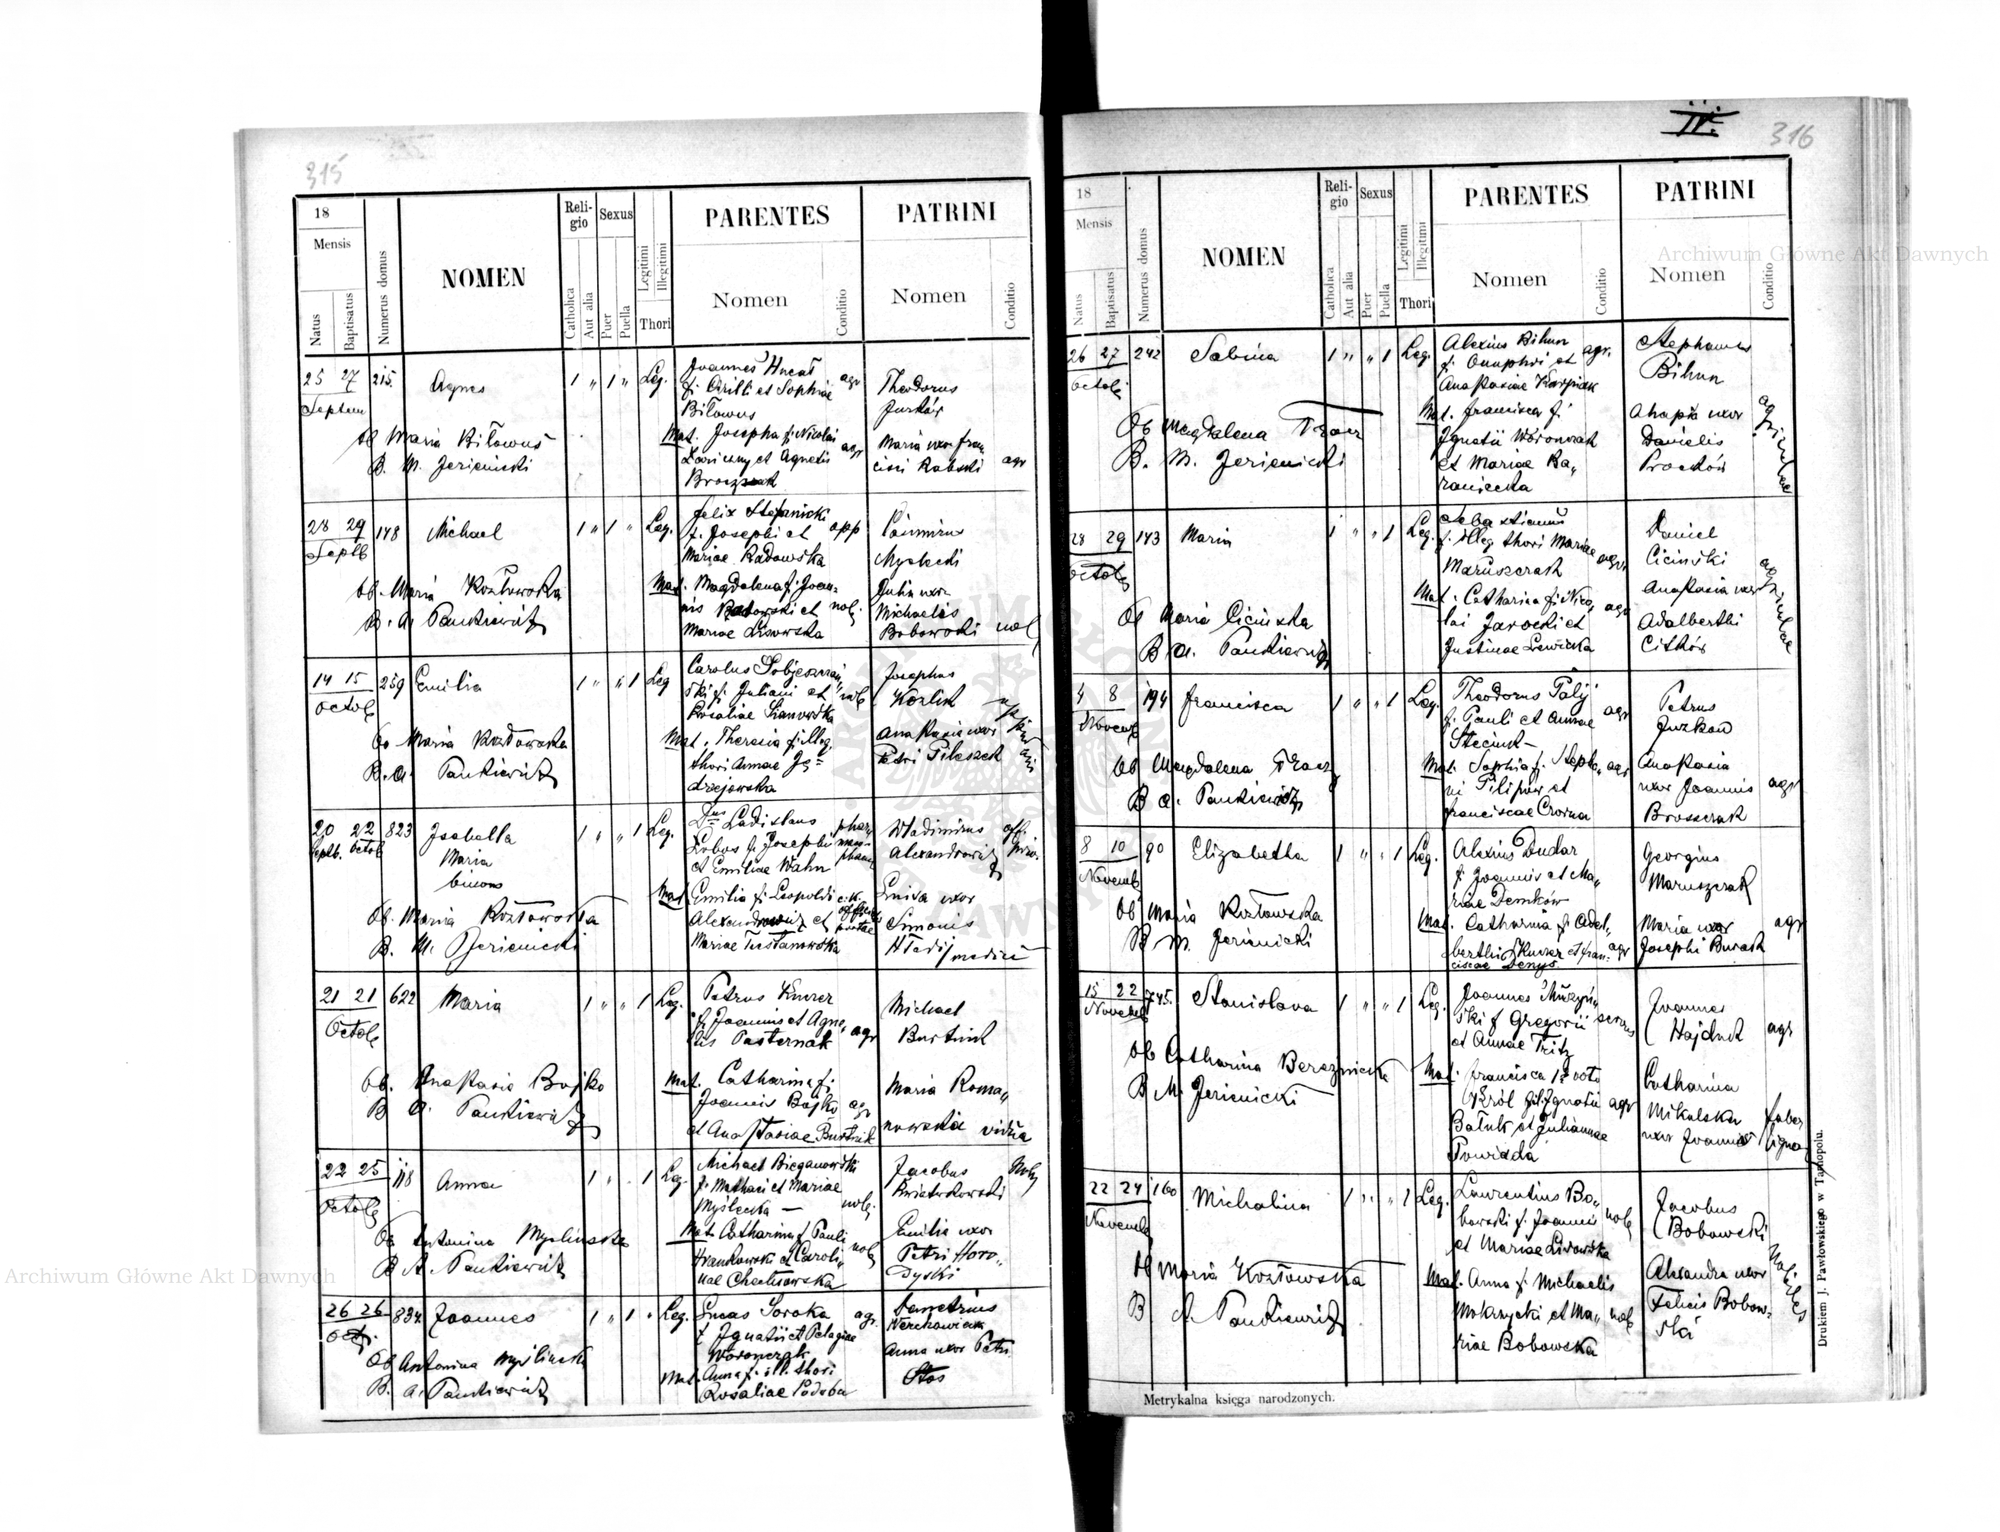 315
18
Mensis
Natus
Baptisatus
Numerus domus
NOMEN
Religio
Catholica
Aut alia
Sexus
Puer
Puella
Legitimi
Illegitimi
Thori
PARENTES
Nomen
Conditio
PATRINI
Nomen
Conditio
25 27 215. Agnes 1 " 1 " Leg.
Septem
Joannes Hucał agr
f. Cirilli et Sophiae
Biłowus
Mat. Josepha f. Nicolai
et Agnetis agr
Theodorus
Jurków
Maria uxor Fran
cisci Rabski agr
Ob Maria Biłowus
B. M. Jerienicki
28 29 148 Michael 1 " 1 " Leg.
Septb
Felix Stefanicki
f. Josephi et opp
Mariae Radowska
Mat. Magdalena f. Joan
nis et nob.
Mariae Lisowska
Casimirus
Mysłecki
Julia uxor
Michaelis
Bobowski nob
Ob. Maria Kozłowska
B. A. Pankiewicz
14 15 259 Emilia 1 " " 1 Leg
Octob
Carolus Sobjeszczań
ski f. Juliani et nob
Rosaliae
Mat. Theresia f. illeg.
thori Annae Ję=
drzejowska
Josephus
Anastasia uxor
Petri
Ob Maria Kozłowska
B. A. Pankiewicz
20 22 823 Isabella 1 " " 1 Leg.
Septb. Octob
Maria
binom
Dnus Ladislaus
Lobos f. Josephi
et Emiliae Wahn
Mat Emilia f. Leopoldi c.k.
Alexandrowicz et
Mariae Tustanowska
Wladimirus
Alexandrowicz
uxor
Simonis
medici
Ob. Maria Kozłowska
B. M. Jerienicki
21 21 622 Maria 1 " " 1 Leg.
Octob
Petrus Kuwer
f. Joannis et Agne,
tis Pasternak agr
Mat. Catharina f.
Joannis Bojko agr
et Anastasiae Burtnik
Michael
Burtnik
Maria Roma,,
nowska vidua
Ob. Anastasia Bojko
B A. Pankiewicz
22 25 118 Anna 1 " . 1 Leg.
Octob
Michael Bieganowski
f. Mathaei et Mariae
Mysłecka — nob.
Mat. Catharina f. Pauli nob
et Caroli,,
nae Chechłowska
Jacobus Nob
Kwiatkowski
Emilia uxor
Petri Horo,,
dyski
Ob Antonina Myslinska
B A. Pankiewicz
26 26 834 Joannes 1 " 1 . Leg.
Oct.
Lucas Soroka agr.
f. Ignatii et Pelagiae
Woronczak
Mat. Anna f. ill. thori
Rosaliae
Demetrius
Anna uxor Petri
Stos
Ob Antonina Myslinska
B. A. Pankiewicz
IV.
316
18
Mensis
Natus
Baptisatus
Numerus domus
NOMEN
Religio
Catholica
Aut alia
Sexus
Puer
Puella
Legitimi
Illegitimi
Thori
PARENTES
Nomen
Conditio
PATRINI
Nomen
Conditio
26 27 242 Sabina 1 " " 1 Leg.
Octob
Alexius Bihun
f. Onuphri et agr.
Anastasiae Karpiak
Mat. Francisca f.
Ignatii Woronczak
et Mariae Ba,,
raniecka
Stephanus
Bihun
Ahapia uxor
Danielis
Proców
agricolae
Ob Magdalena Tkacz
B. M. Jerienicki
28 29 143 Maria 1 " " 1 Leg.
Octob
Sebastianus
f. illeg. thori Mariae agr
Maruszczak
Mat. Catharina f. Nico, agr
lai Jarocki et
Justinae Lewicka
Daniel
Ciciński
Anastasia uxor
Adalberthi
Citków
agricolae
Ob Maria Cicinska
B A. Pankiewicz
4 8 194 Francisca 1 " " 1 Leg.
Novemb
Theodorus Palij
f. Pauli et Annae agr
Steciuk—
Mat. Sophia f. Stepha, agr
ni Pilipów et
Franciscae
Petrus
Juzkow
Anastasia
uxor Joannis agr
Broszczak
Ob Magdalena Tkacz
B A. Pankiewicz
8 10 90 Elizabetha 1 " " 1 Leg.
Novemb
Alexius Dudar
f. Joannis et Ma,,
riae Demków
Mat. Catharina f. Adal,,
berthi Kuwer et Fran- agr
ciscae Denys
Georgius
Maruszczak
Maria uxor agr
Josephi Burak
Ob Maria Kozłowska
B M. Jerienicki
15 22 745. Stanislava 1 " " 1 Leg.
Novemb
Joannes
ski f Gregorii servus
et Annae Tritz
Mat. Francisca 1º voto
Król fil. Ignatii agr
Bałuk et Juliannae
Powizda
Joannes
Hajduk agr
Catharina
Mikulska faber
uxor Joannis lignar
Ob Catharina Bereznicka
B M. Jerienicki
22 24 160 Michalina 1 " " 1 Leg.
Novemb
Laurentius Bo,,
bowski f. Joannis nob
et Mariae Lisowska
Mat. Anna f. Michaelis
Mokrzycki et Ma,, nob
riae Bobowska
Jacobus
Bobowski
Alexandra uxor
Felicis Bobow,,
ski
Nobiles
Ob Maria Kozłowska
B A. Pankiewicz
Metrykalna księga narodzonych.
Drukiem J. Pawłowskiego w Tarnopolu.
Archiwum Główne Akt Dawnych
Archiwum Główne Akt Dawnych
ARCHIWUM GŁÓWNE AKT DAWNYCH